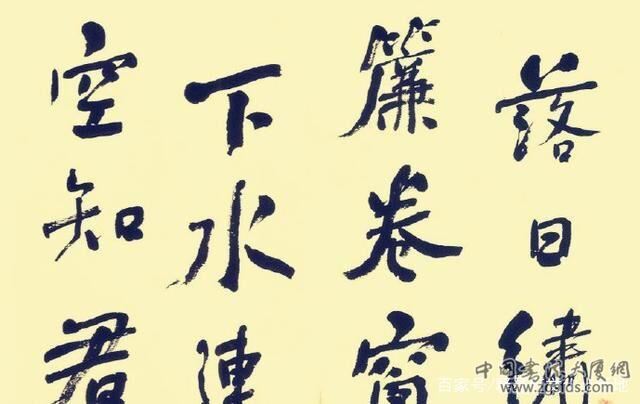 落日繡
簾卷亭
下水連
空知君
中国書法大厦網
www.zgsfds.com
百家号/